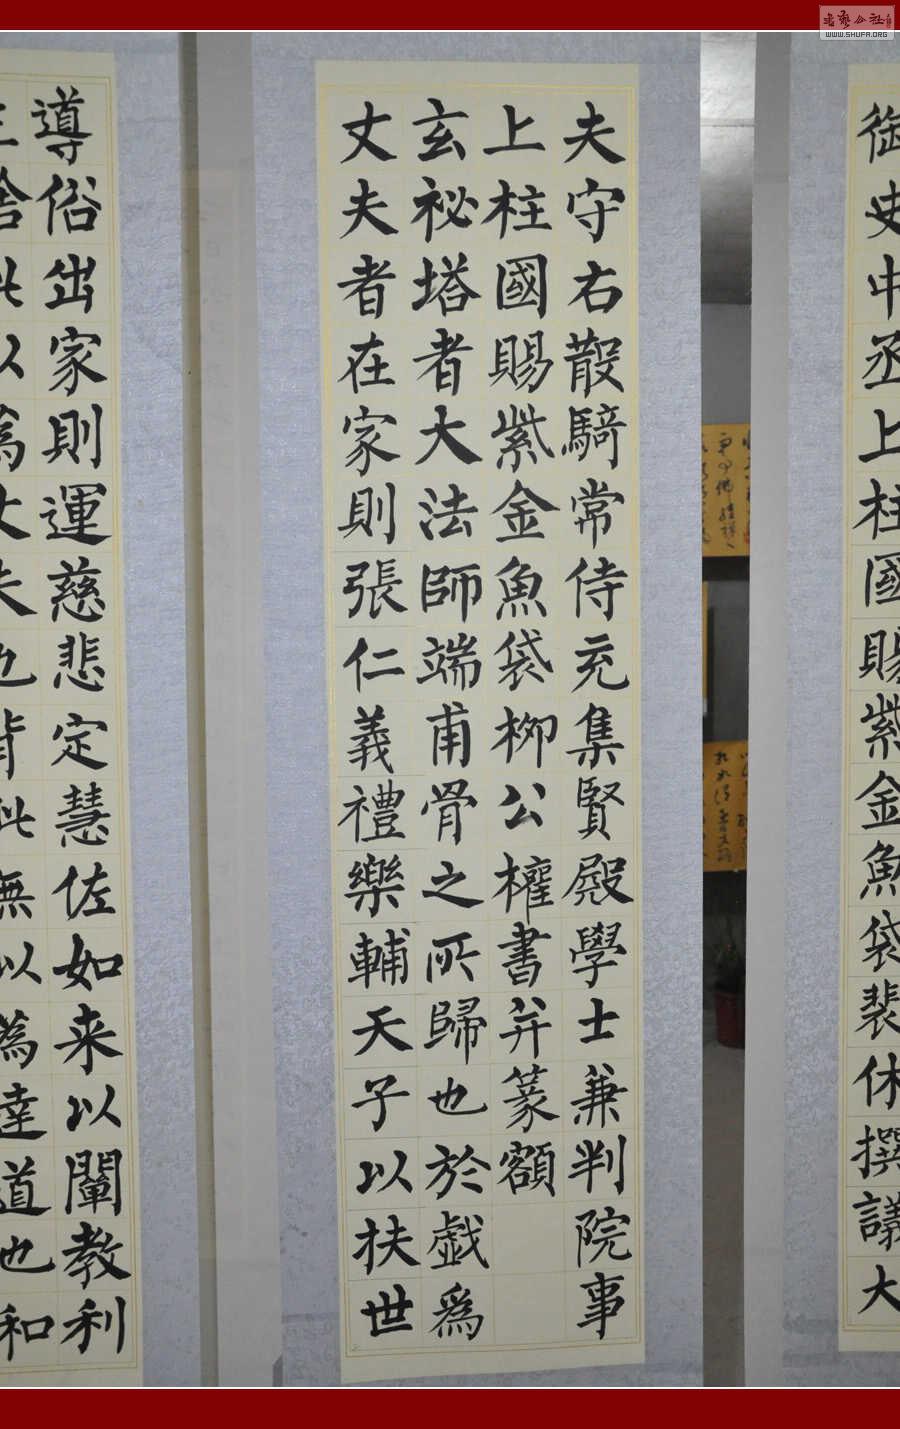 御史中丞上柱國賜紫金魚袋裴休撰議大
夫守右散騎常侍充集賢殿學士兼判院事
上柱國賜紫金魚袋柳公權書并篆額
玄祕塔者大法師端甫骨之所歸也於戲為
丈夫者在家則張仁義禮樂輔天子以扶世
導俗出家則運慈悲定慧佐如来以闡教利
捨此以為丈夫也背此無以為達道也和
WWW.SHUFA.ORG